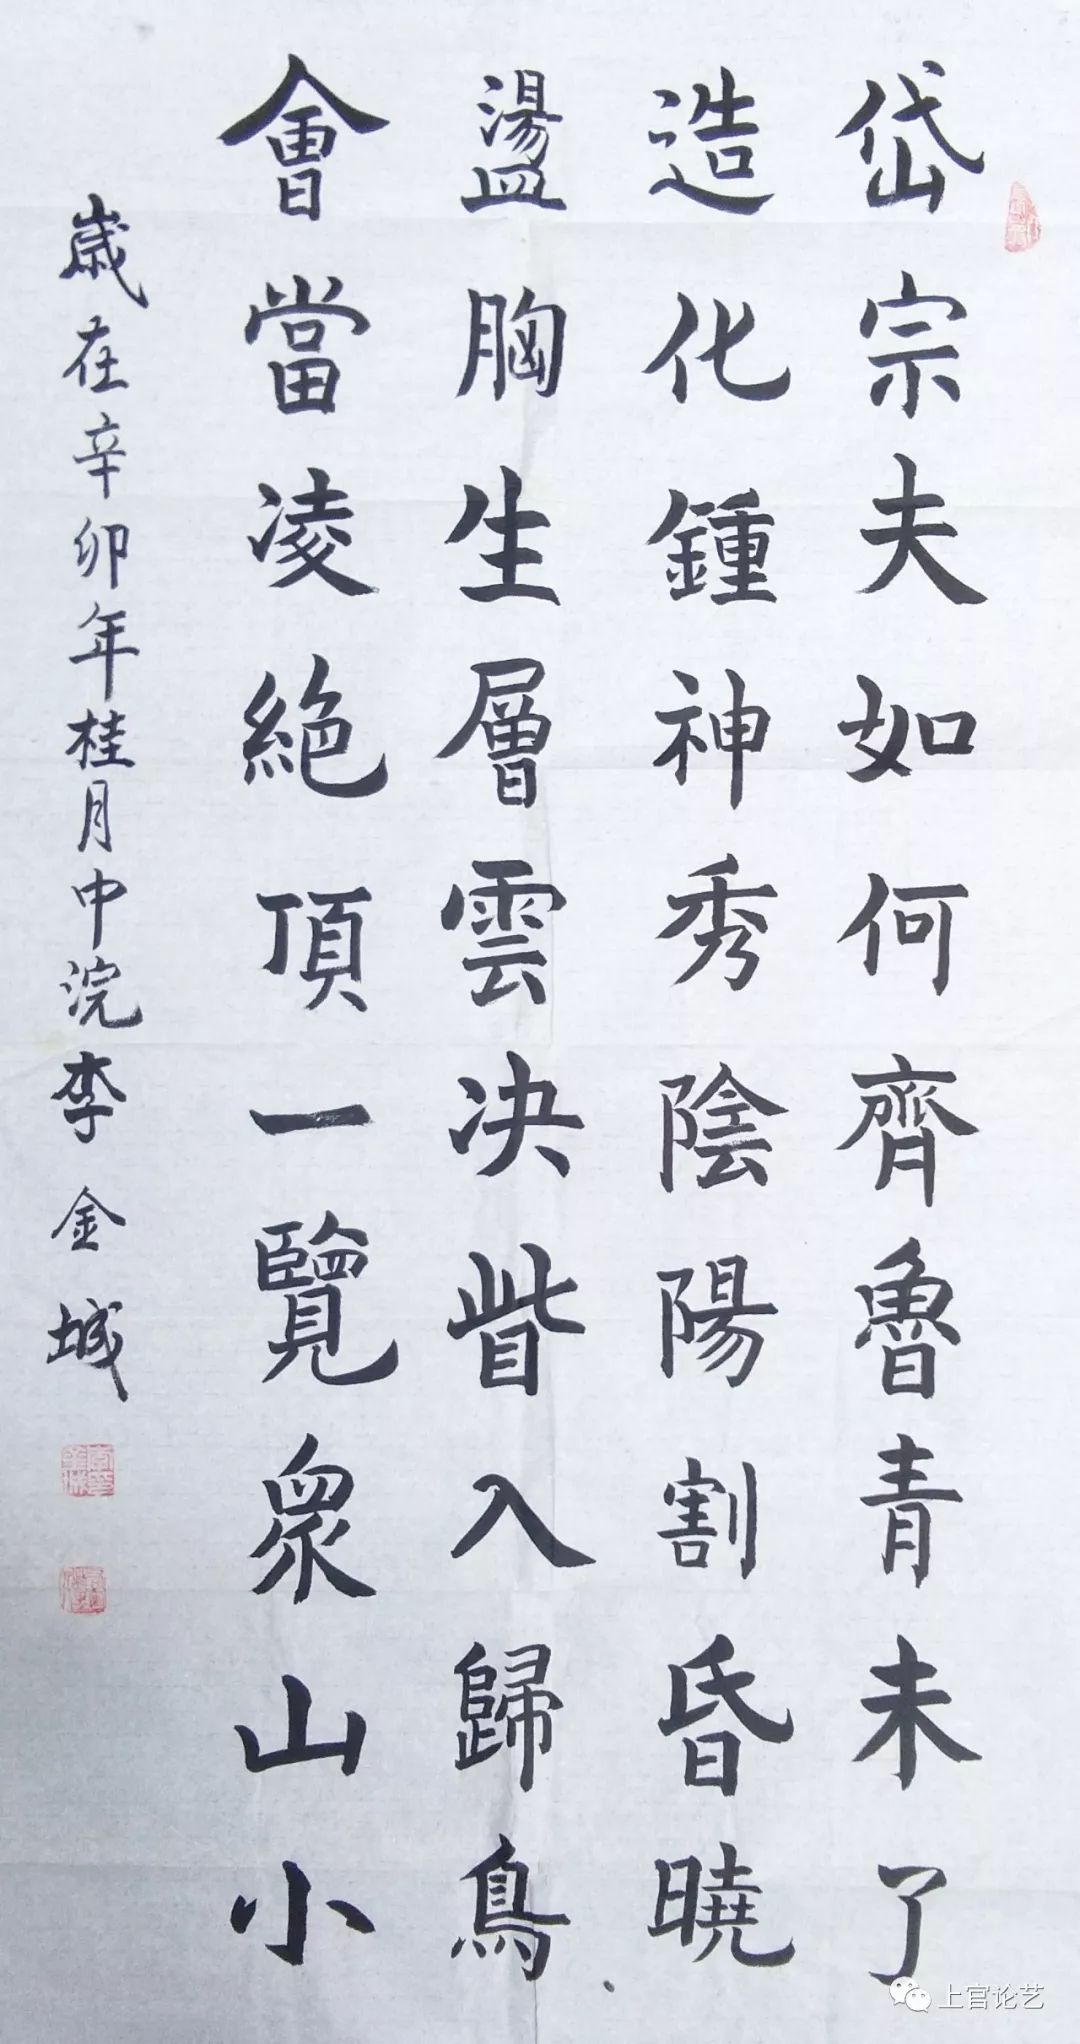 岱宗夫如何齊魯青未了
造化鍾神秀陰陽割昏曉
盪胸生層雲决眥入歸鳥
會當凌絕頂一覽衆山小
歲在辛卯年桂月中浣李金城
上官论艺